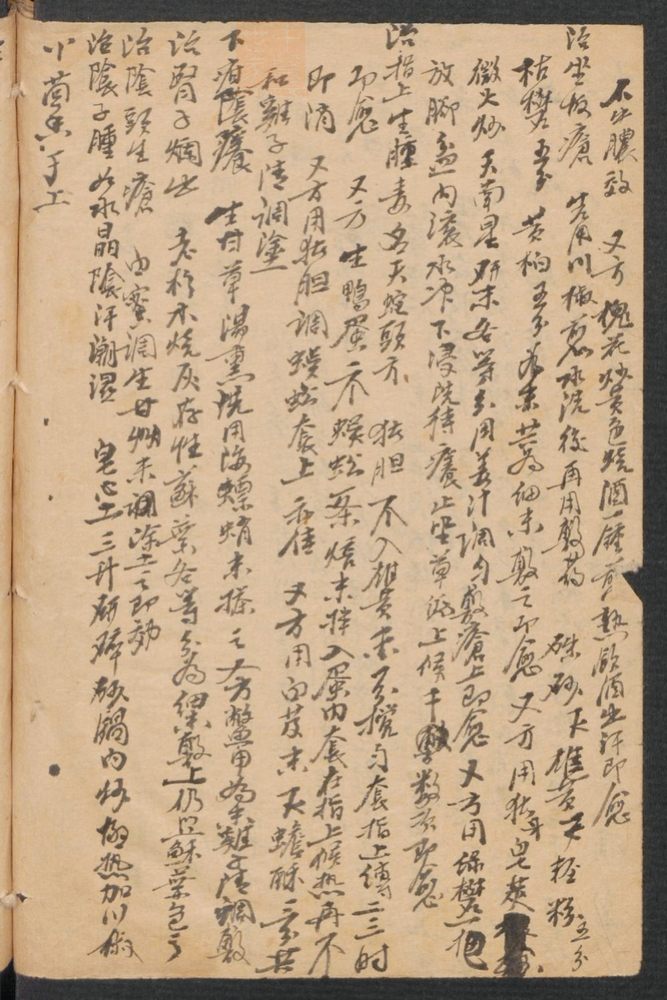 不出膿效　又方　槐花炒黃色燒酒一鍾煎熱飲酒出汗即愈
治坐板瘡　先用川椒煎水洗後再用敷药　硃砂 雄黃 輕粉五分
枯礬五分　黃柏五分為末共為細末敷之即愈　又方用猪牙皂莢
微火炒　天南星研末各等分用姜汁調勻敷瘡上即愈　又方用綠礬一把
放腳盆內滾水冲下浸洗待癢止坐草紙上候干數次即愈
治指上生腫毒名天蛇頭方　猪胆一个入雄黃末攪勻套指上縛二三时
即愈　又方　生鴨蛋一个蜈蚣一条焙末拌入蛋內套在指上候熱再不
即消　又方用猪胆調蜈蚣套上亦佳　又方用白芨末 蟾酥 共
和雞子清調塗
下疳陰癢　生甘草湯熏洗用海螵蛸末搽之又方鱉甲為末雞子清調敷
治腎子爛出　老杉木燒灰存性蘇葉各等分為細末敷上仍以蘇葉包之
治陰頭生瘡　白蜜調生甘草末調涂上之即効
治陰子腫如水晶陰汗潮濕　皂 土三升研碎砂鍋內炒極熱加川椒
小茴香